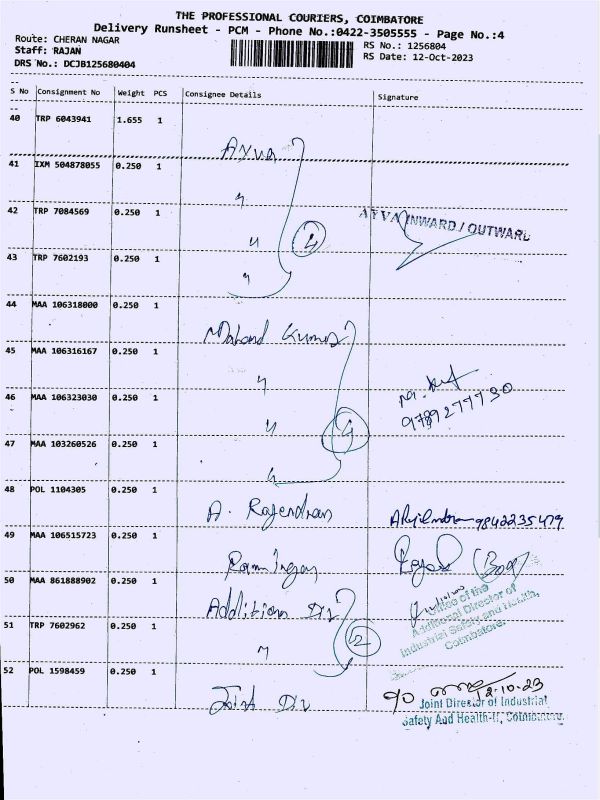 THE PROFESSIONAL COURIERS, COIMBATORE
Delivery Runsheet - PCM - Phone No.:0422-3505555 - Page No.:4
Route: CHERAN NAGAR
Staff: RAJAN
DRS No.: DCJB125680404
RS No.: 1256804
RS Date: 12-Oct-2023
S No Consignment No Weight PCS Consignee Details Signature
40 TRP 6043941 1.655 1 Ayva
41 IXM 504878055 0.250 1 "
42 TRP 7084569 0.250 1 " 4 AYVA INWARD / OUTWARD
43 TRP 7602193 0.250 1 "
44 MAA 106318000 0.250 1 Kumar
45 MAA 106316167 0.250 1 "
46 MAA 106323030 0.250 1 " 4 9789277730
47 MAA 103260526 0.250 1 "
48 POL 1104305 0.250 1 A. Rajendran 9842235479
49 MAA 106515723 0.250 1
50 MAA 861888902 0.250 1 Addition Dir
Office of the
Additional Director of
Industrial Safety and Health,
Coimbatore.
51 TRP 7602962 0.250 1 " 2
52 POL 1598459 0.250 1 Joint Dir
12-10-23
Joint Director of Industrial
Safety And Health-II, Coimbatore.